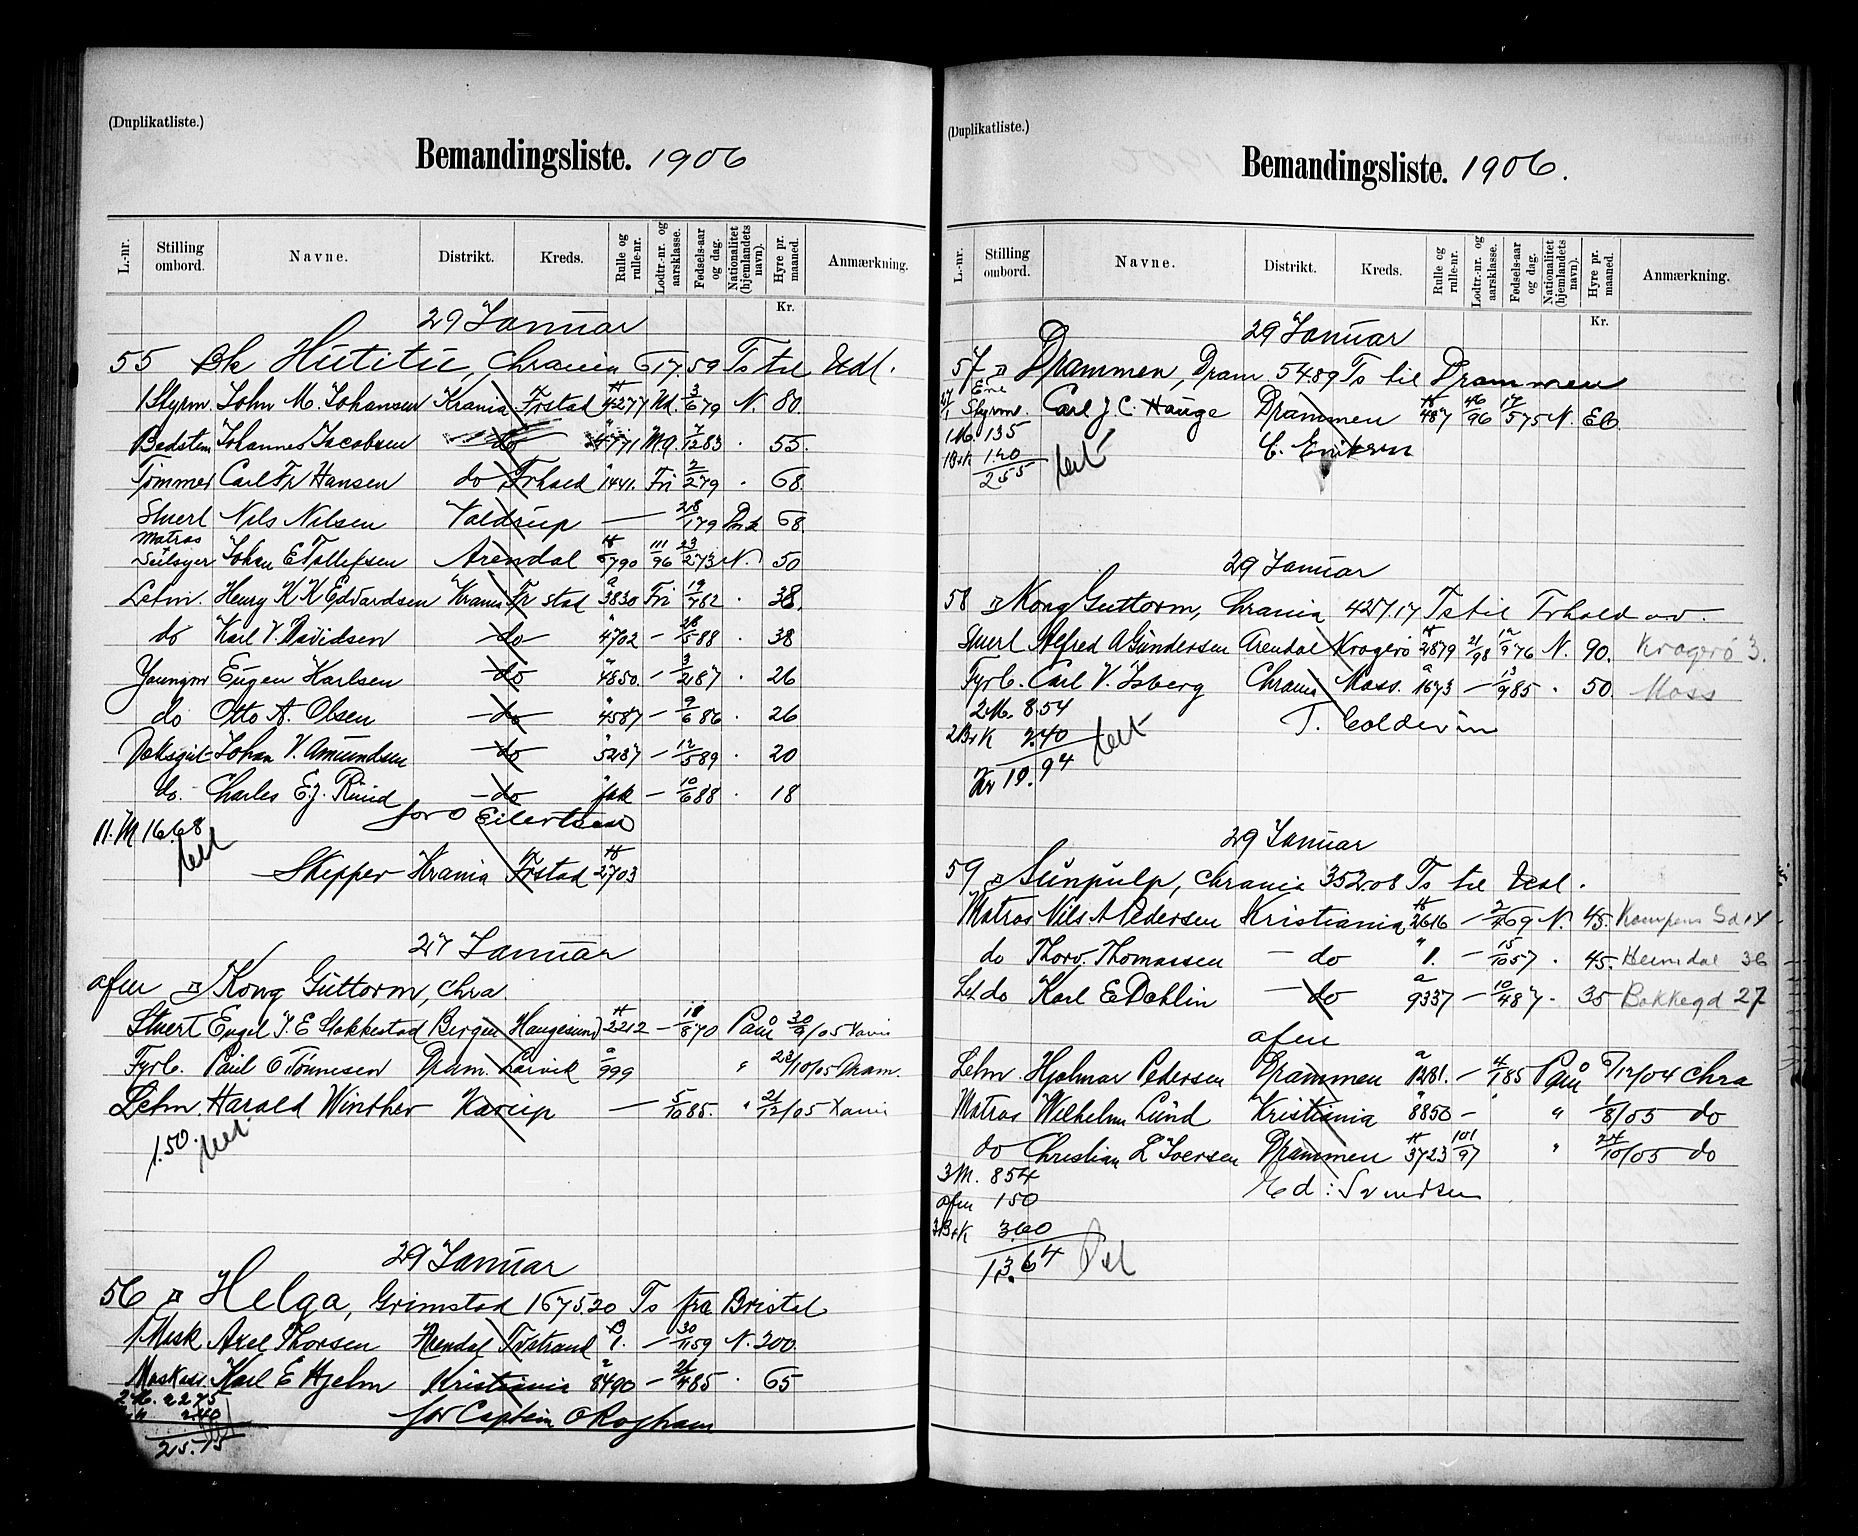 (Duplikatliste.)
Bemandingsliste. 1906
L.-nr.
Stilling ombord.
Navne.
Distrikt.
Kreds.
Rulle og rulle-nr.
Lodtr.-nr. og aarsklasse.
Fødsels-aar og dag.
Nationalitet (hjemlandets navn).
Hyre pr. maaned.
Anmærkning.
Kr.
29 Januar
55 Bk Hutitu, Chrania 617.59 Ts til Udl.
1 Styrm. John M. Johansen Krania Frstad 4277 3/6 79 N. 80.
Bedstem Johannes Jacobsen do 4771 7/12 83 . 55.
Tømmer Carl Fr Hansen do Frhald 1441. Fri 2/2 79 . 68.
Stuert Nils Nilsen — 28/1 79 68.
Matros Seilsyer Johan E Tollefsen Arendal 6790 111/96 23/2 73 N. 50
Letm. Henry K K Edvardsen Krania Fr stad a 3830 Fri 19/7 82 . 38.
do Karl V Davidsen do 4702 — 26/5 88 . 38
Youngm Eugen Karlsen do 4850. — 3/2 87 . 26
do Otto A. Olsen do 4587 — 9/6 86 . 26
Dæksgut Johan V. Amundsen do 5237 — 12/5 89 . 20
do. Charles E.J. Ruud do — 10/6 88 . 18
for O Eilertsen
11. M 16.68
Skipper Krania Frstad H 2703
27 Januar
Kong Guttorm, Chra.
Stuert Engel J. E Stokkestad Bergen Haugesund H 2212 — 18/8 70 Paa 30/9/05
Fyrb. Paul O Tønnesen Dram. Larvik a 999 " 23/10/05 Dram.
Letm. Harald Winther — 5/10 85. " 21/12/05
1.50.
29 Januar
56 Helga, Grimstad 1675.20 Ts fra Bristol
1 Mask Axel Thorsen Arendal Tvstrand 1. — 30/11 59 N. 200.
Karl E Hjelm Kristiania a 8490 — 21/4 85 . 65
2 M. 22.75
2.40
for Captein O Rogham
25.15
(Duplikatliste.)
Bemandingsliste. 1906.
L.-nr.
Stilling ombord.
Navne.
Distrikt.
Kreds.
Rulle og rulle-nr.
Lodtr.-nr. og aarsklasse.
Fødsels-aar og dag.
Nationalitet (hjemlandets navn).
Hyre pr. maaned.
Anmærkning.
Kr.
29 Januar
57 Drammen, Dram 54.89 Ts til Drammen
Ene Styrm. Carl J. C. Hauge Drammen H 487 46/96 17/5 75 N.
1 M. 1.35
C. Eriksen
1 B+K 1.20
2.55
29 Januar
58 Kong Guttorm, Chrania 427.17 Ts til Frhald
Stuert Alfred A Gundersen Arendal Kragerø H 2879 21/98 12/9 76 N. 90. Kragerø 3.
Fyrb. Carl V. Isberg Chrania Moss. a 1673 — 13/9 85 . 50. Moss
2 M. 8.54
T. Coldevin
2 B+K 2.40
Kr 10.94
29 Januar
59 Sunpulp, Chrania 352.08 Ts til
Matros Nils A Pedersen Kristiania H 2616 — 2/4 69 N. 45.
do Thorv. Thomassen — do " 1. — 15/10 57 . 45. Heimdal 36
Let do Karl E Dahlin — do a 9337 — 10/4 87 . 35 Bakkegd 27
Letm. Hjalmar Pedersen Drammen a 1281. — 4/1 85 Paa 6/12/04 Chra
Matros Wilhelm Lund Kristiania " 8850 — " " 1/8/05 do
do Christian L Iversen Drammen H 3723 101/97 " 24/10/05 do
3 M. 8.54
Ed: Svendsen
1.50
3 B+K 3.60
13.64